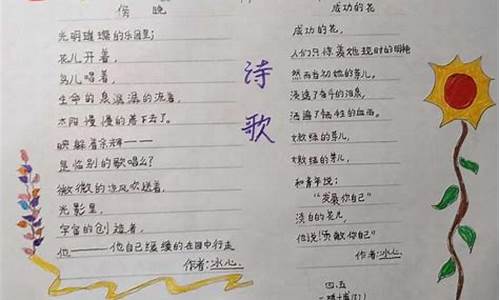 傍晚
光明璀璨的乐园里;
花儿开着,
鸟儿唱着,
生命的泉潺潺的流着,
太阳慢慢的落下去了。
映射着余辉——
是临别的歌唱么?
微微的凉风吹送着,
光影里,
宇宙的创造者,
他——他自己缓缓的在园中行走
作者:冰心.
诗歌
成功的花
成功的花,
人们只惊羡她现时的明艳
然而当初她的芽儿,
浸透了奋斗的泪泉,
洒遍了牺牲的血雨。
嫩绿的芽儿,
嫩绿的芽儿,
和青年说:
"发展你自己"
淡白的花儿,
他说!"贡献你自己"
作者:冰心.
四.五